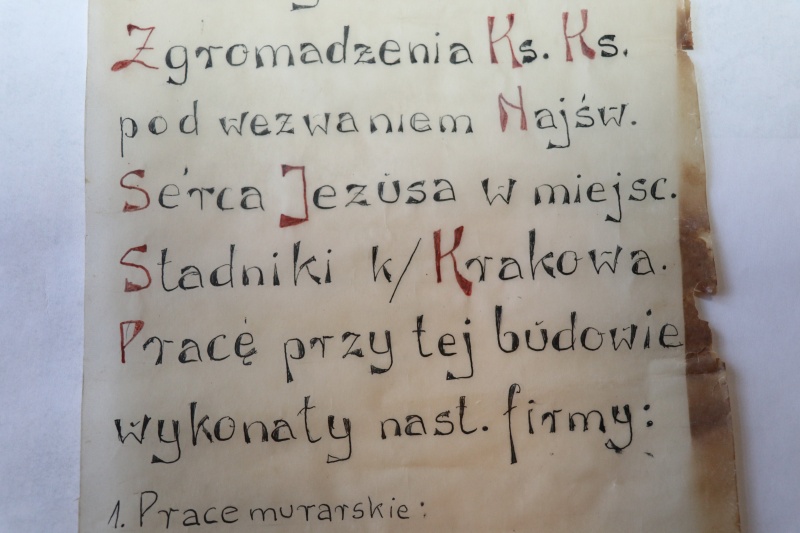 Zgromadzenia Ks. Ks.
pod wezwaniem Najśw.
Serca Jezusa w miejsc.
Stadniki k/Krakowa.
Pracę przy tej budowie
wykonały nast. firmy:
1. Prace murarskie: